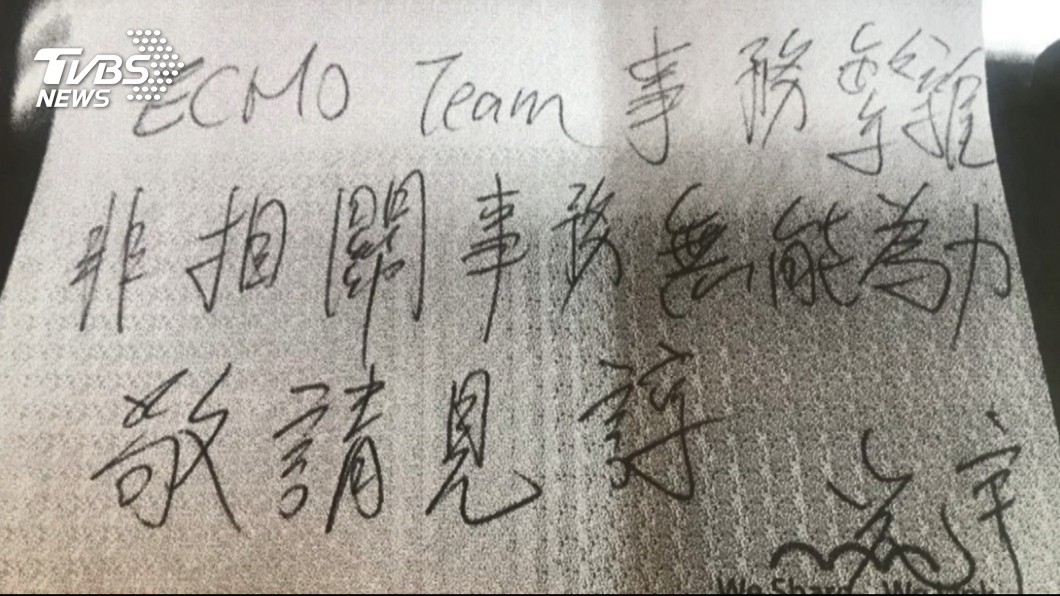 TVBS
NEWS
ECMO Team 事務繁雜
非相關事務無能為力
敬請見諒
We Share